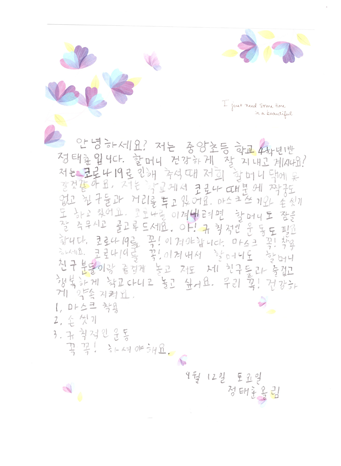 I just need some
is a beautiful
안녕하세요? 저는 중앙초등 학교 4학년 1반
정태윤입니다. 할머니 건강하게 잘 지내고 계시나요?
저는 코로나19로 인해 추석 때 저희 할머니 댁에
저는 학교에서 코로나 때문에 짝꿍도
없고 친구들과 거리를 두고 있어요. 마스크 손 씻기
도 하고 있어요. 코로나를 이겨내려면 할머니도 잠은
잘 주무시고 골고루 드세요. 아! 규칙적인 운동도 필요
합니다. 코로나19를 꼭! 이겨야 합니다. 마스크 꼭! 착용
하세요. 코로나19를 꼭! 이겨내서 할머니도 할머니
친구분들이랑 놀고 저도 제 친구들과 즐겁고
행복하게 학교 다니고 놀고 싶어요. 우리 꼭! 건강하
게 약속
1. 마스크 착용
2. 손 씻기
3. 규칙적인 운동
꼭 꼭! 하셔야 해요.
4월 12일 토요일
정태윤 올림